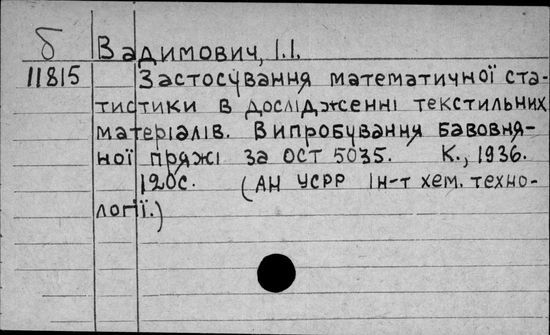 б Вадимович, І.І.
11815 Застосування математичної ста-
тистики в дослідженні текстильних
матеріалів. Випробування бавовня-
ної пряжі за ОСТ 5035. К., 1936.
120с. (АН УСРР Ін-т хем. техно-
логії.)